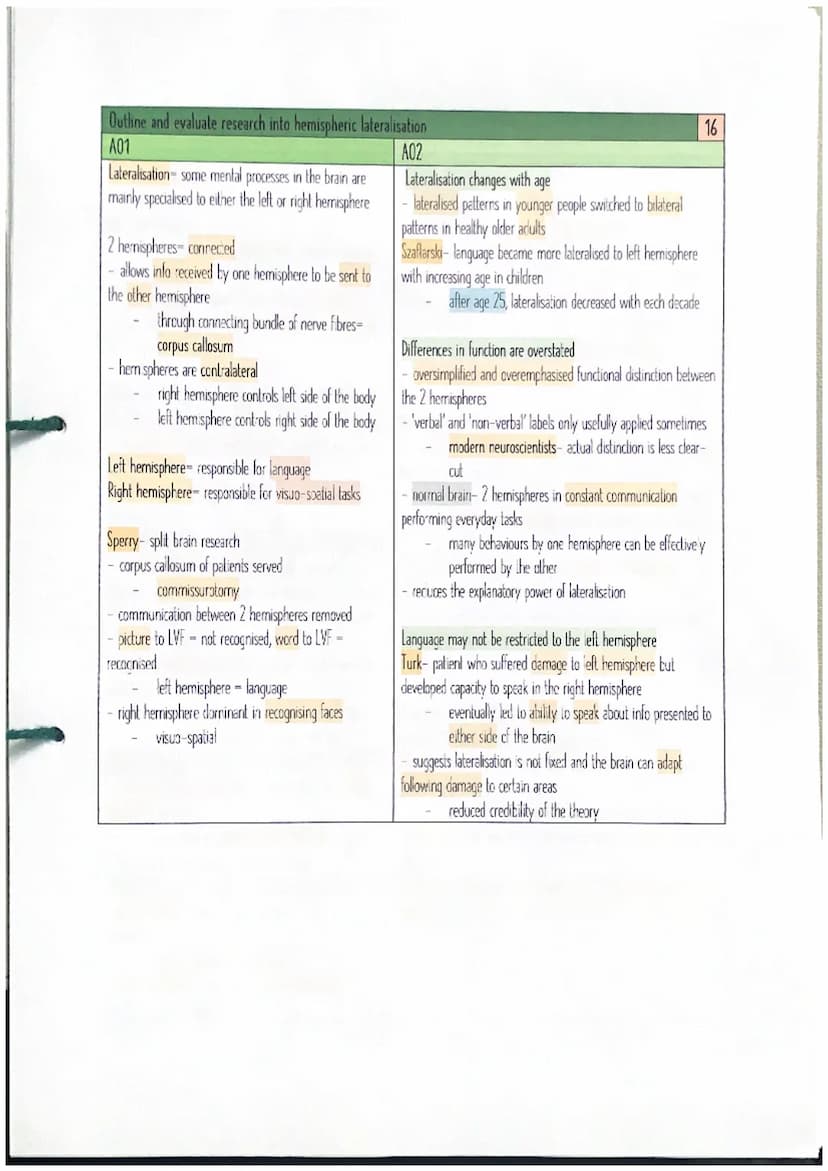 Outline and evaluate research into hemispheric lateralisation
16
A01
Lateralisation= some mental processes in the brain are
mainly specialised to either the left or right hemisphere
2 hemispheres= connected
- allows info received by one hemisphere to be sent to
the other hemisphere
- through connecting bundle of nerve fibres=
corpus callosum
- hemispheres are contralateral
- right hemisphere controls left side of the body
- left hemisphere controls right side of the body
Left hemisphere= responsible for language
Right hemisphere= responsible for visuo-spatial tasks
Sperry- split brain research
- corpus callosum of patients served
- commissurotomy
- communication between 2 hemispheres removed
- picture to LVF = not recognised, word to LVF =
recognised
- left hemisphere = language
- right hemisphere dominant in recognising faces
- visuo-spatial
A02
Lateralisation changes with age
- lateralised patterns in younger people switched to bilateral
patterns in healthy older adults
Szaflarski- language became more lateralised to left hemisphere
with increasing age in children
- after age 25, lateralisation decreased with each decade
Differences in function are overstated
- oversimplified and overemphasised functional distinction between
the 2 hemispheres
- 'verbal' and 'non-verbal' labels only usefully applied sometimes
- modern neuroscientists- actual distinction is less clear-
cut
- normal brain- 2 hemispheres in constant communication
performing everyday tasks
- many behaviours by one hemisphere can be effectively
performed by the other
- reduces the explanatory power of lateralisation
Language may not be restricted to the left hemisphere
Turk- patient who suffered damage to left hemisphere but
developed capacity to speak in the right hemisphere
- eventually led to ability to speak about info presented to
either side of the brain
- suggests lateralisation is not fixed and the brain can adapt
following damage to certain areas
- reduced credibility of the theory